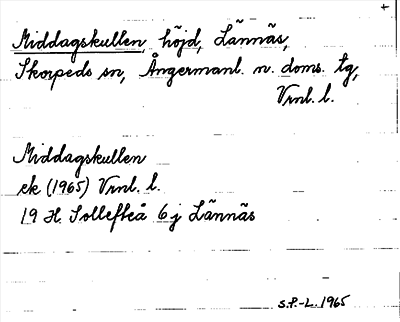 +
Middagskullen, höjd, Lännäs,
Skorpeds sn, Ångermanl. n. doms. tg,
Vrnl. l.
Middagskullen
ek (1965) Vrnl. l.
19 H. Sollefteå 6 j Lännäs
S.P.-L. 1965